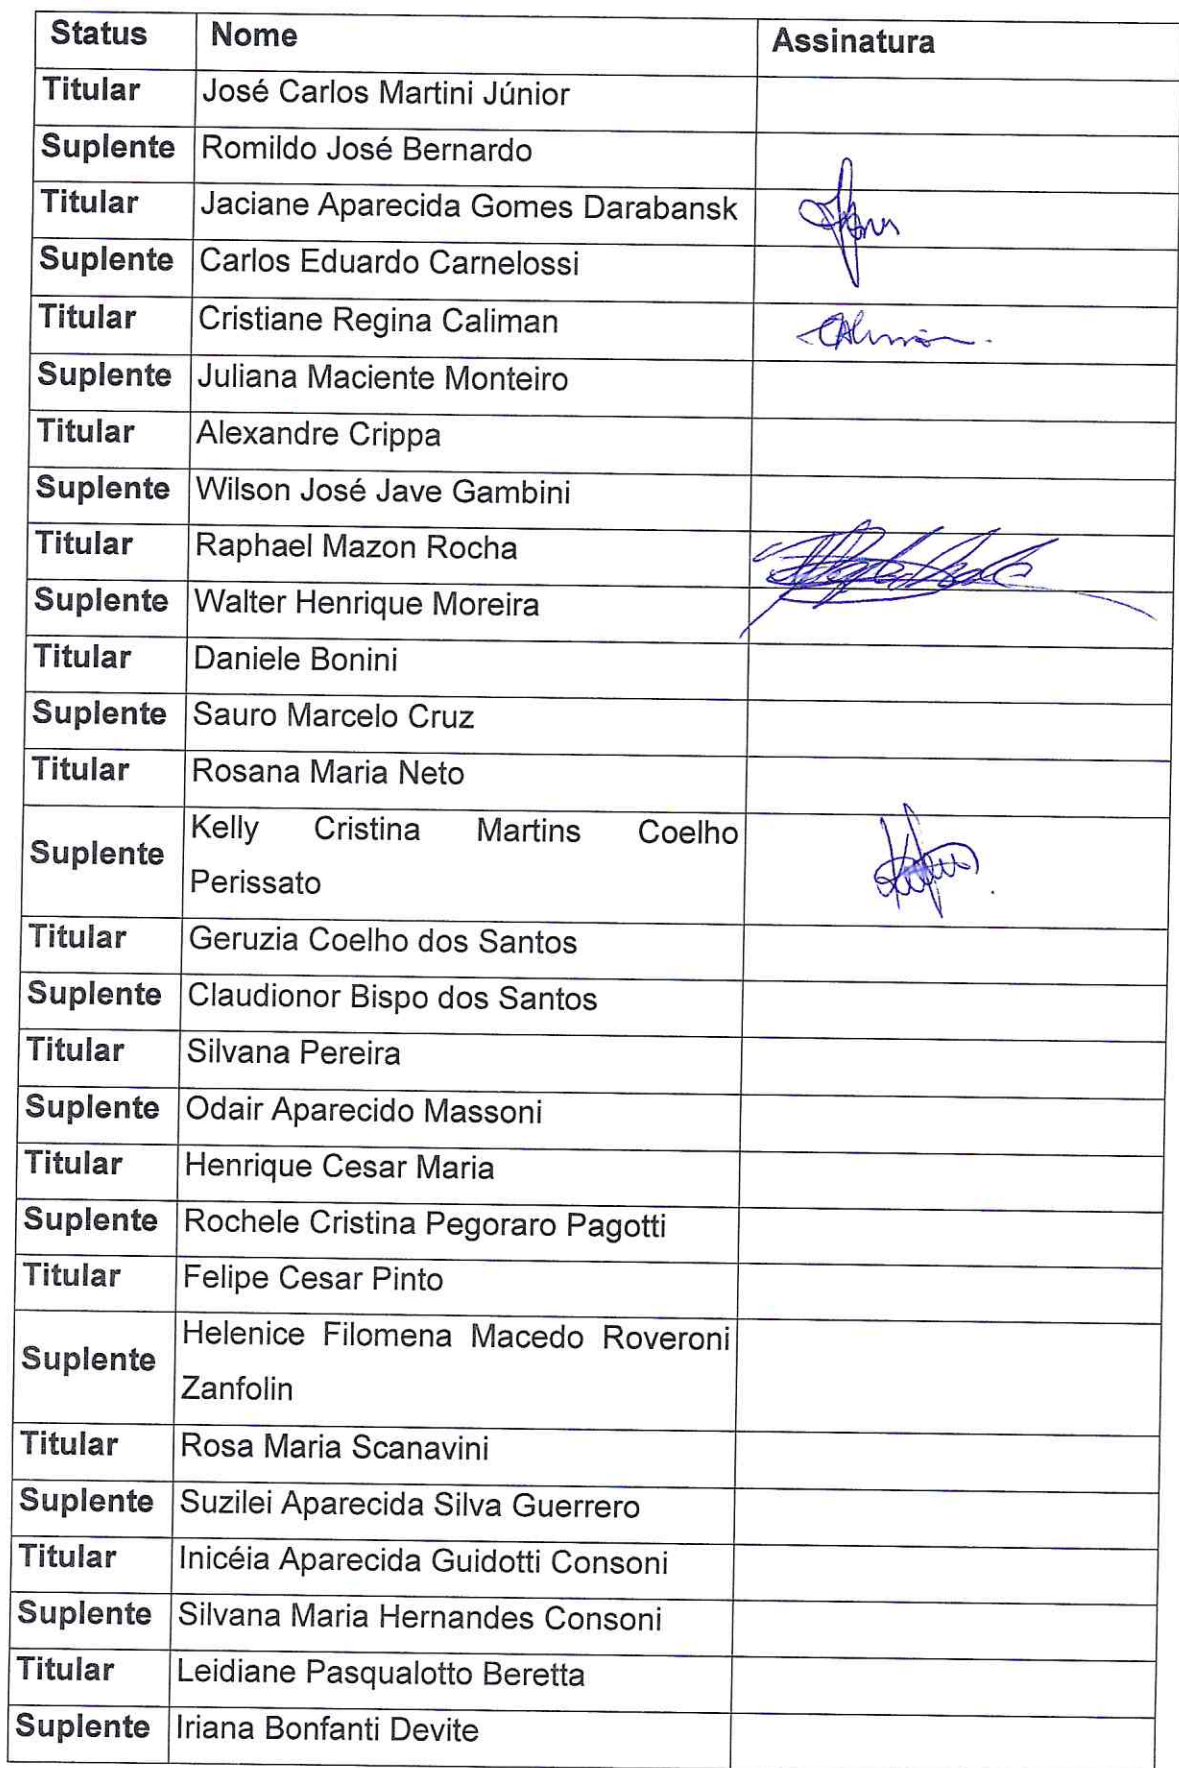 Status Nome Assinatura
Titular José Carlos Martini Júnior
Suplente Romildo José Bernardo
Titular Jaciane Aparecida Gomes Darabansk
Suplente Carlos Eduardo Carnelossi
Titular Cristiane Regina Caliman
Suplente Juliana Maciente Monteiro
Titular Alexandre Crippa
Suplente Wilson José Jave Gambini
Titular Raphael Mazon Rocha
Suplente Walter Henrique Moreira
Titular Daniele Bonini
Suplente Sauro Marcelo Cruz
Titular Rosana Maria Neto
Suplente Kelly Cristina Martins Coelho
Perissato
Titular Geruzia Coelho dos Santos
Suplente Claudionor Bispo dos Santos
Titular Silvana Pereira
Suplente Odair Aparecido Massoni
Titular Henrique Cesar Maria
Suplente Rochele Cristina Pegoraro Pagotti
Titular Felipe Cesar Pinto
Suplente Helenice Filomena Macedo Roveroni
Zanfolin
Titular Rosa Maria Scanavini
Suplente Suzilei Aparecida Silva Guerrero
Titular Inicéia Aparecida Guidotti Consoni
Suplente Silvana Maria Hernandes Consoni
Titular Leidiane Pasqualotto Beretta
Suplente Iriana Bonfanti Devite